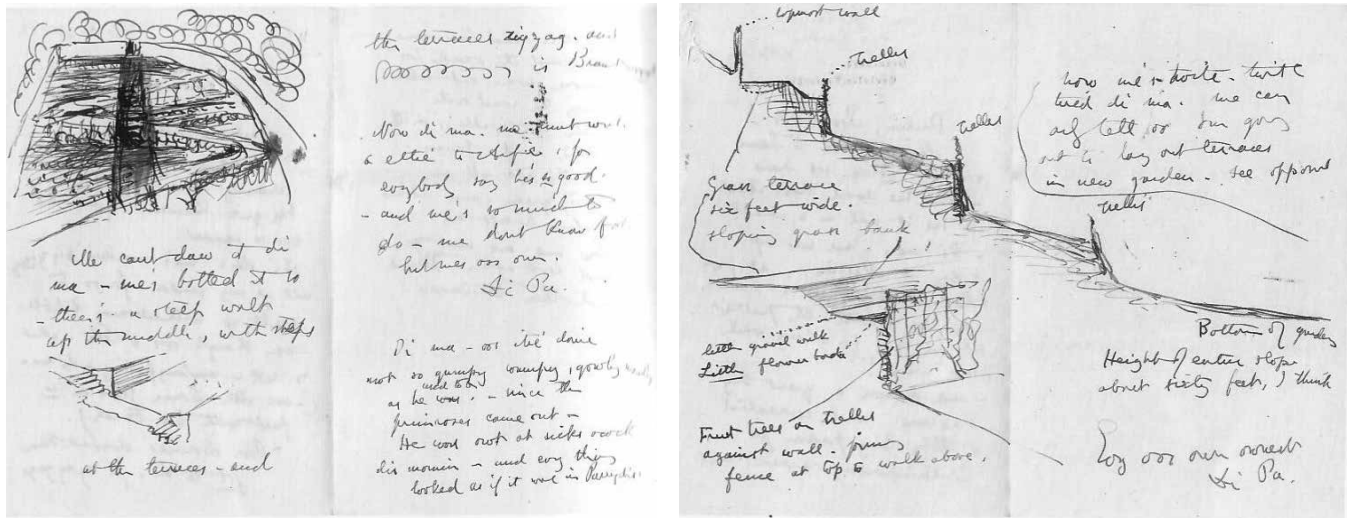 Me can't daw it di
ma - me's botted it so
- there's a steep walk
up the middle, with steps
at the terraces - and
the terraces zigzag. and
is
Now di ma. me must work
a ettie to, for
evybody say he's so good.
- and me's so much to
do - me dont know
but mes oos own.
Di Pa.
Di ma - oos
not so gumpy wumpy, gowly
as he was. - since the
primroses came out -
He was out at sicks
dis mornin - and evy thing
looked as if it was in
topmost wall
trellis
trellis
trellis
Grass terrace
six feet wide.
sloping grass bank
little gravel walk
Little flower bank
Fruit trees on trellis
against wall - joining
fence at top to walk above.
now me's
tired di ma. me can
tell oo
out to lay out terraces
in new garden - see opposite
Bottom of garden
Height of entire slope
about sixty feet, I think
Evy oos own ownest
Di Pa.